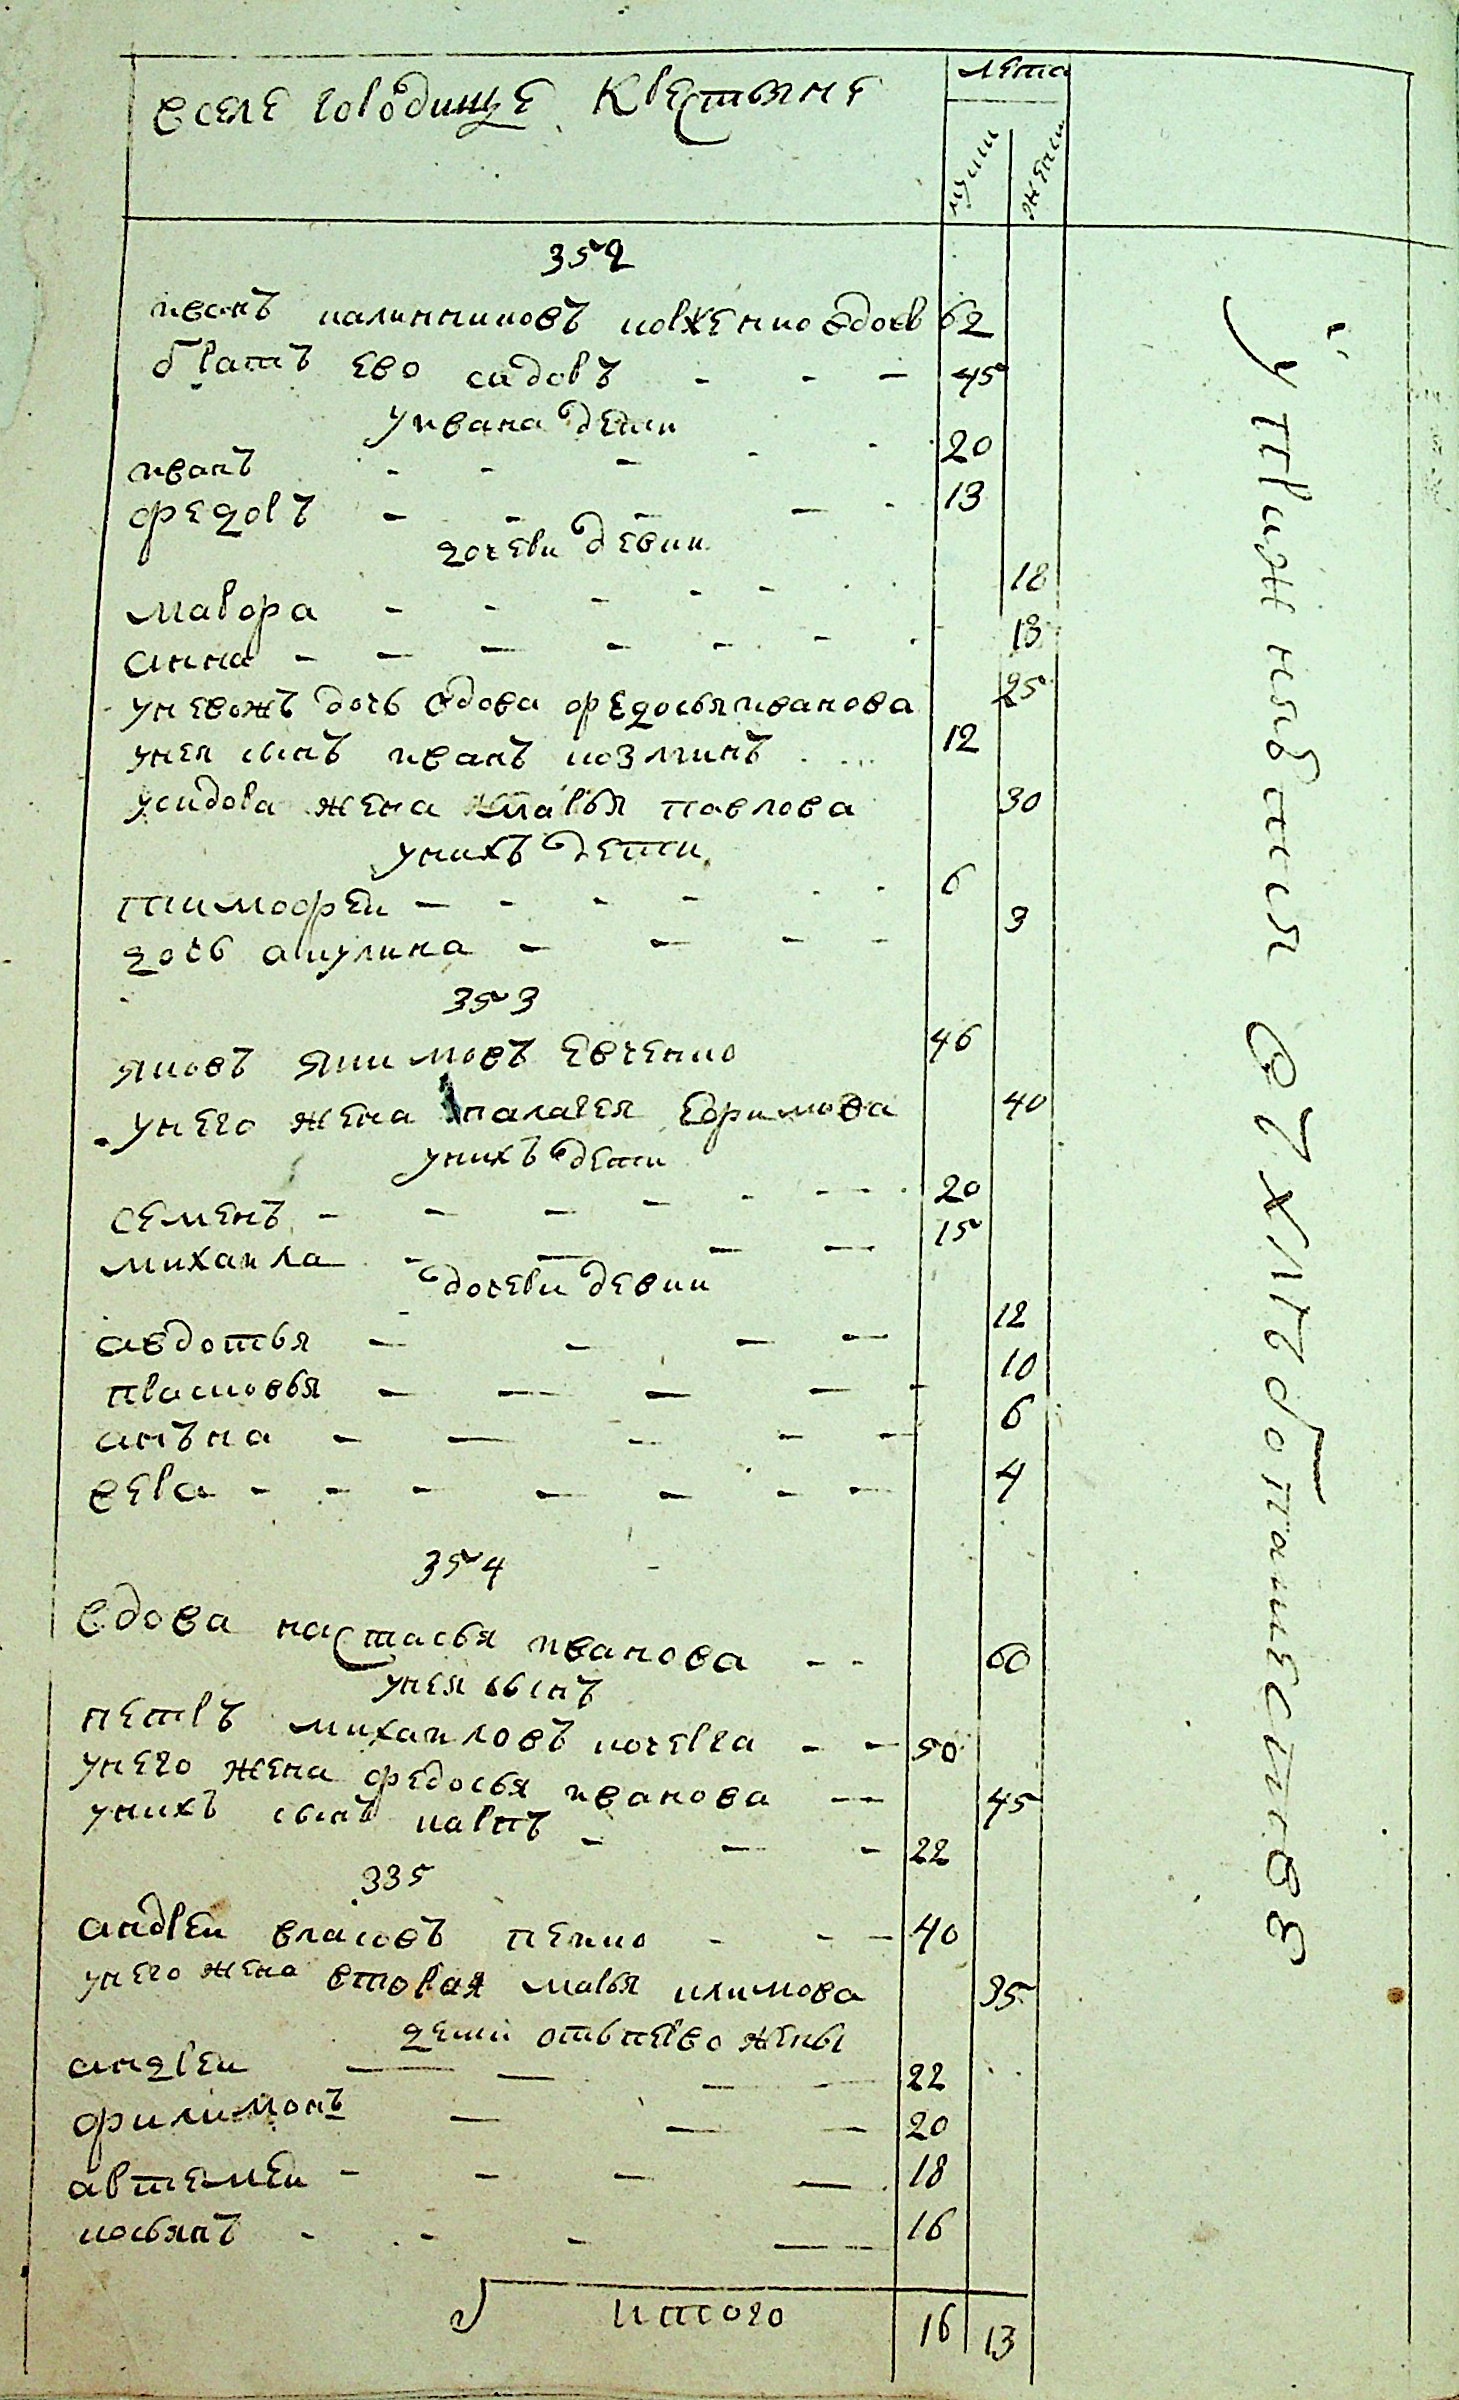 вселе городище крестьяне
лета
мужи
женск
352
иванъ калинниковъ коржению вдовъ 62
братъ ево сидоръ 45
уивана дети
иванъ 20
федоръ 13
дочери девки
мавора 18
анна 13
унеюжъ дочь вдова федосья иванова 25
унея сынъ иванъ козминъ 12
усидора жена марья павлова 30
унихъ дети
тимофеи 6
дочь акулина 3
353
яковъ якимовъ евченко 46
унего жена палагея ефимова 40
унихъ дети
семенъ 20
михаила 15
дочери девки
авдотья 12
прасковья 10
анъна 6
вера 4
354
вдова настасья иванова 60
унея сынъ
петръ михаиловъ кочерга 50
унего жена федосья иванова 45
унихъ сынъ карпъ 22
335
андреи власовъ пенко 40
унего жена вторая марья климова 35
дети отьперво жены
андреи 22
филимонъ 20
артемеи 18
косьянъ 16
итого 16 13
упражняются в хлебопашестве